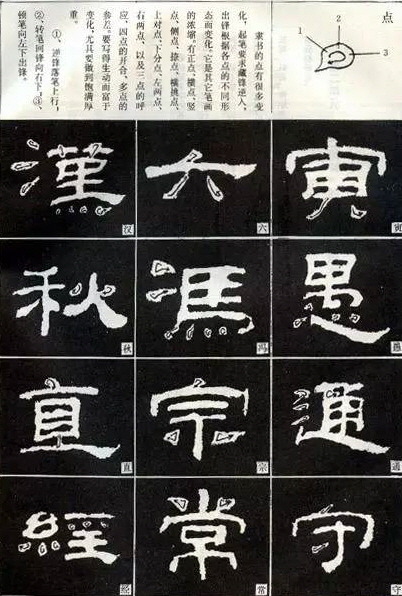 点
1
2
3
隶书的点有很多变
化，起笔要求藏锋逆入，
出锋根据各点的不同形
态而变化。它是其它笔画
的浓缩。有正点、横点、竖
点、侧点、横挑点、
上对点、下分点、左两点、
右两点、以及三点的呼
应、四点的开合、多点的
参差。要写得生动而富于
变化，尤其要做到饱满厚
重。
①、逆锋落笔上行，
②、转笔回锋向右下，③、
顿笔向左下出锋。
寅
寅
六
六
漢
汉
愚
愚
馮
冯
秋
秋
通
通
宗
宗
直
直
守
守
常
常
經
经